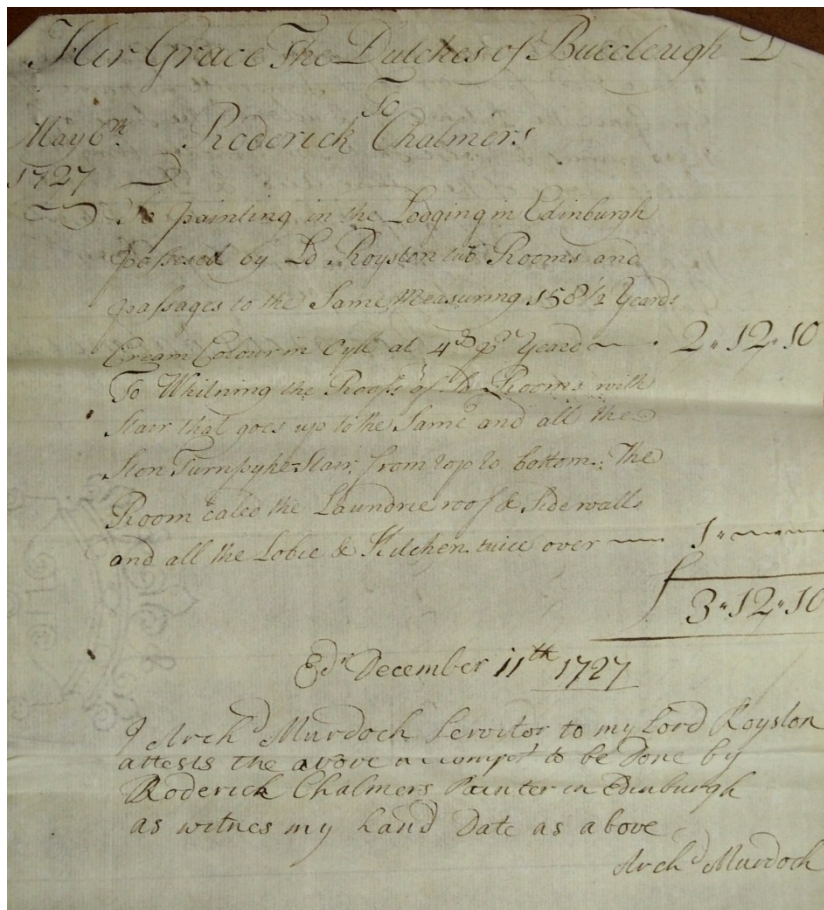 Her Grace The Dutches of Buccleugh D
To
May 6th. Roderick Chalmers
1727
To painting in the Lodging in Edinburgh
possesed by Ld. Royston two Rooms and
passages to the Same Measuring 158½ Yeards
Cream Colour in Oyll at 4d p Yeard 2 " 12 " 10
To Whitning the Roofs of the Rooms with
Stair that goes up to the Same and all the
Ston Turnpyke Stair from top to bottom: The
Room caled the Laundrie roof & Side walls
and all the Lobie & Kitchen twice over 1 "
3 " 12 " 10
Edr December 11th 1727
I Archd Murdoch Servitor to my Lord Royston
attests the above accompt to be Done by
Roderick Chalmers Painter in Edinburgh
as witnes my hand Date as above
Archd Murdoch